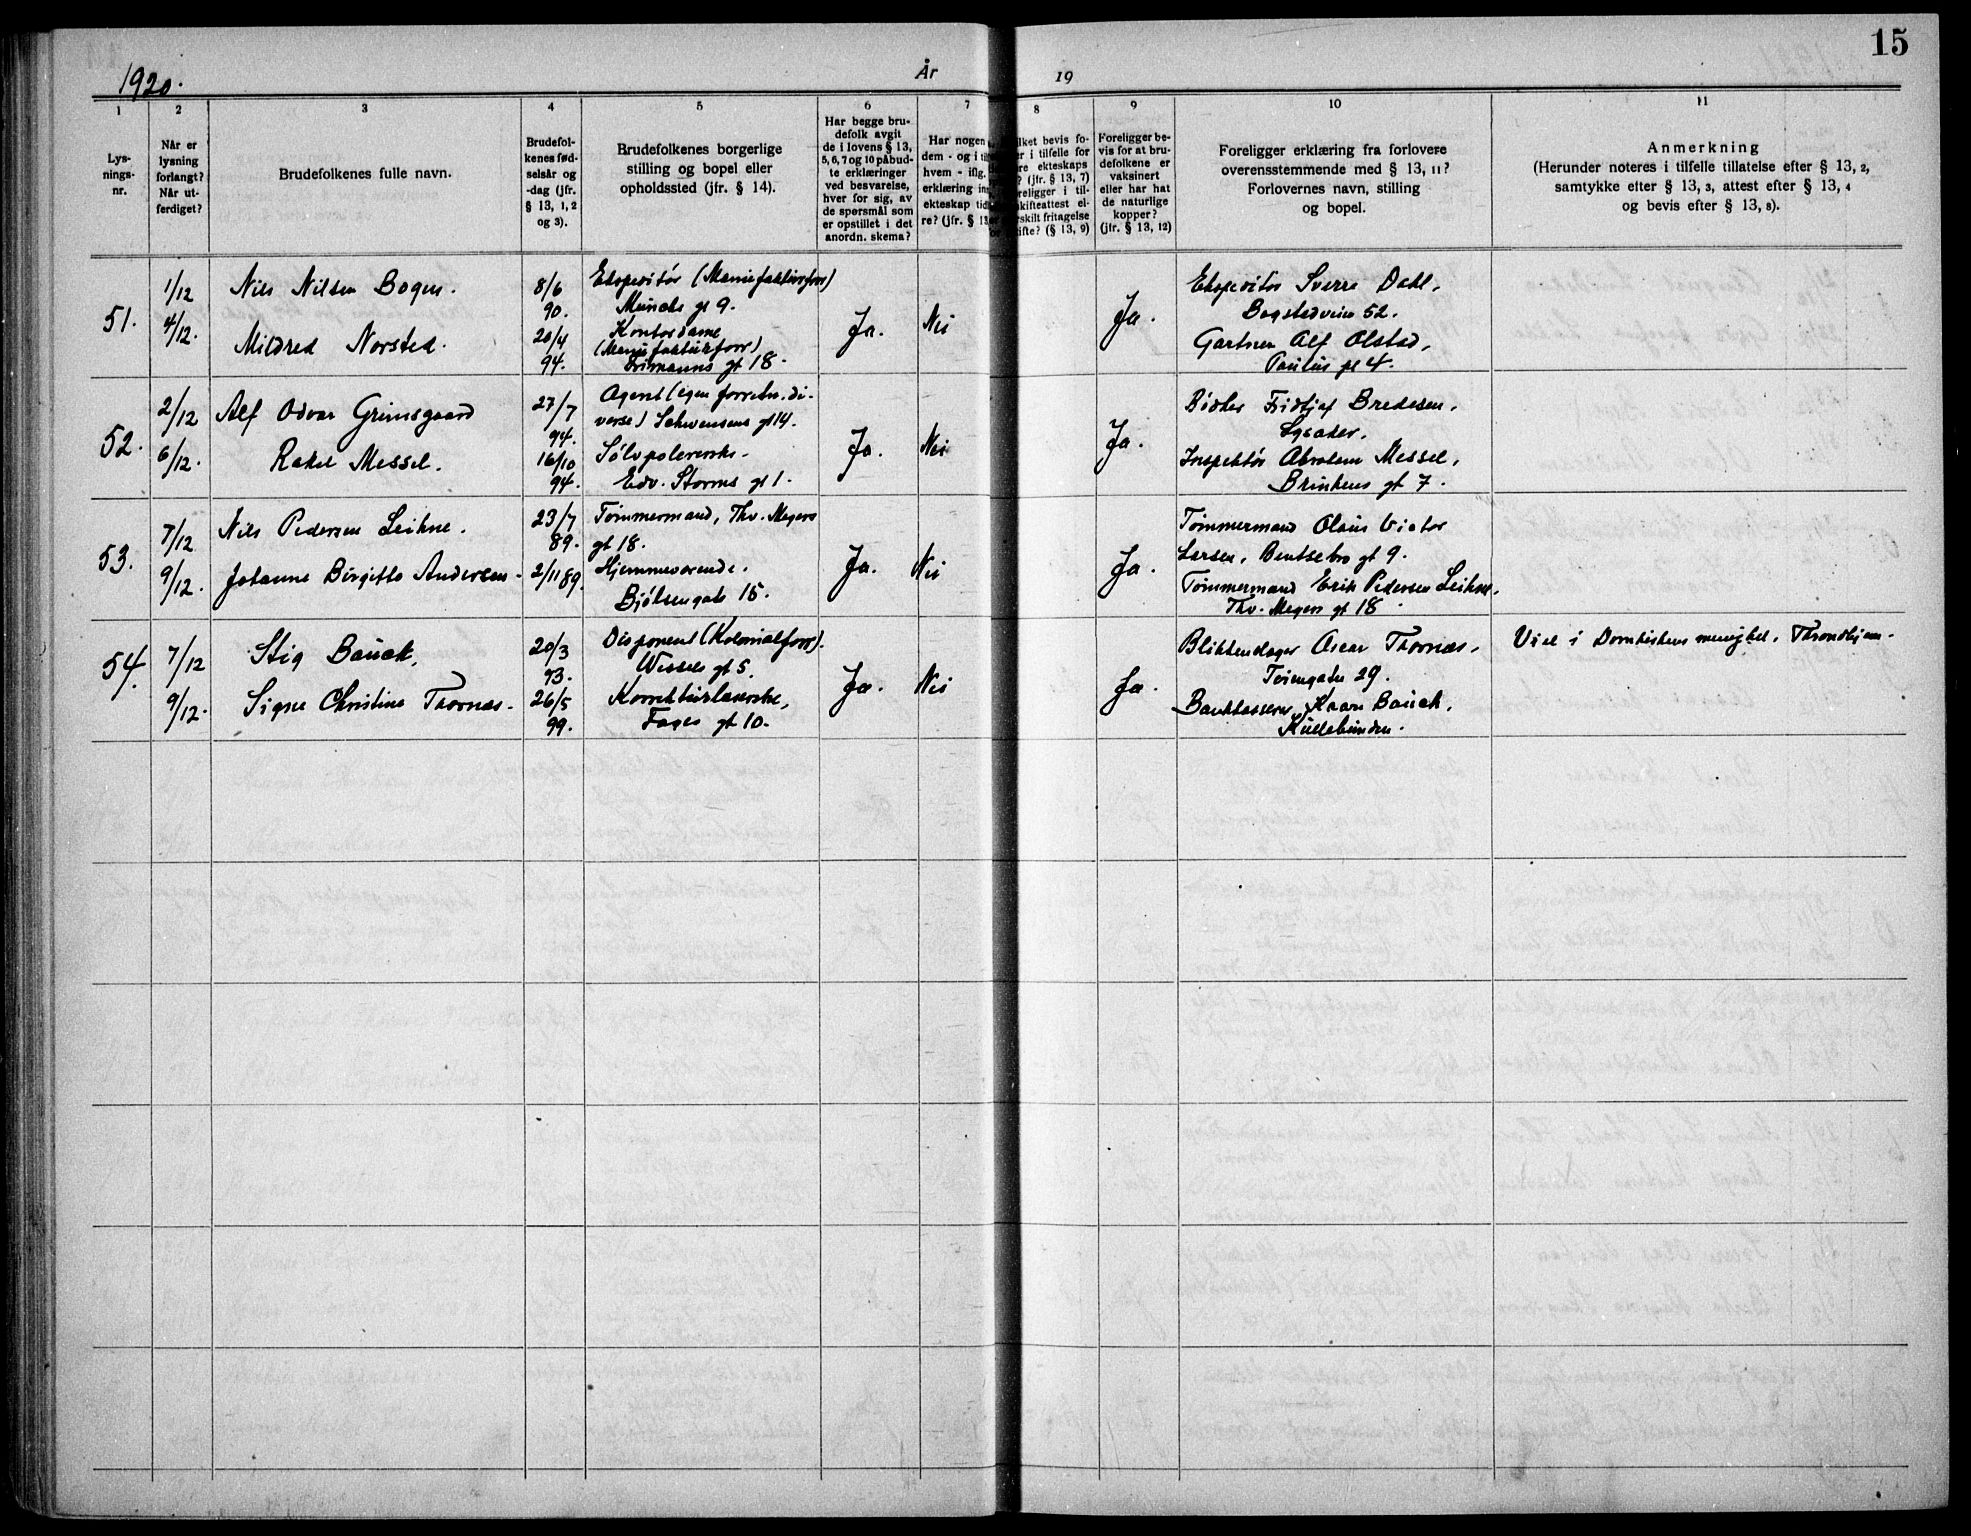 15
1920.
År
19
1
2
3
4
5
6
7
8
9
10
11
Lys-
nings-
nr.
Når er
lysning
forlangt?
Når ut-
ferdiget?
Brudefolkenes fulle navn.
Brudefol-
kenes fød-
selsår og
-dag (jfr.
§ 13, 1, 2
og 3).
Brudefolkenes borgerlige
stilling og bopel eller
opholdssted (jfr. § 14).
Har begge bru-
defolk avgit
de i lovens § 13,
5, 6, 7 og 10 påbud-
te erklæringer
ved besvarelse,
hver for sig, av
de spørsmål som
er opstillet i det
anordn. skema?
Har nogen
dem - og i
hvem - iflg.
erklæring
ekteskap
re? (jfr. § 13
bevis fo-
i tilfelle for
ekteskaps
? (jfr. § 13, 7)
i til-
el-
fritagelse
? (§ 13, 9)
Foreligger be-
vis for at bru-
defolkene er
vaksinert
eller har hat
de naturlige
kopper?
(jfr. § 13, 12)
Foreligger erklæring fra forlovere
overensstemmende med § 13, 11?
Forlovernes navn, stilling
og bopel.
Anmerkning
(Herunder noteres i tilfelle tillatelse efter § 13, 2,
samtykke efter § 13, 3, attest efter § 13, 4
og bevis efter § 13, 8).
51.
1/12
4/12.
Nils Nilsen Bogen.
Mildred Norsted.
8/6
90.
20/4
94.
Ekspeditør (Manufakturforr)
Munchs gt 9.
Kontordame
(Manufakturforr)
gt 18.
Ja.
Nei
Ja.
Ekspeditør Sverre Dahl,
Bogstadveien 52.
Gartner Alf Olstad,
Paulus pl 4.
52.
2/12
6/12.
Alf Odvar Grimsgaard
Rakel Messel.
27/7
94.
16/10
94.
Agent (egen forretn. di-
verse) Schwensens gt 14.
Sølvpolererske.
Edv. Storms gt 1.
Ja.
Nei
Ja.
Bødker Fridtjof Bredesen,
Lysaker.
Inspektør Abraham Messel,
Brinkens gt 7.
53.
7/12
9/12.
Nils Pedersen Leikne.
Johanne Birgitte Andersen.
23/7
89.
2/11 89.
Tømmermand, Thv. Meyers
gt 18.
Hjemmeværende.
Bjølsengate 15.
Ja.
Nei
Ja.
Tømmermand Olaus Viator
Larsen, Bentsebro gt 9.
Tømmermand Erik Pedersen Leikne,
Thv. Meyers gt 18.
54.
7/12
9/12.
Stig Bauck,
Signe Christine Thornæs.
20/3
93.
26/5
99.
Disponent (Kolonialforr).
Wessels gt 5.
Korrekturlæserske,
Fages gt 10.
Ja.
Nei
Ja.
Blikkenslager Oscar Thornæs,
Tøiengaten 29.
Bankkasserer Kaare Bauck,
Kullebunden.
Viet i Domkirkens menighet, Throndhjem.